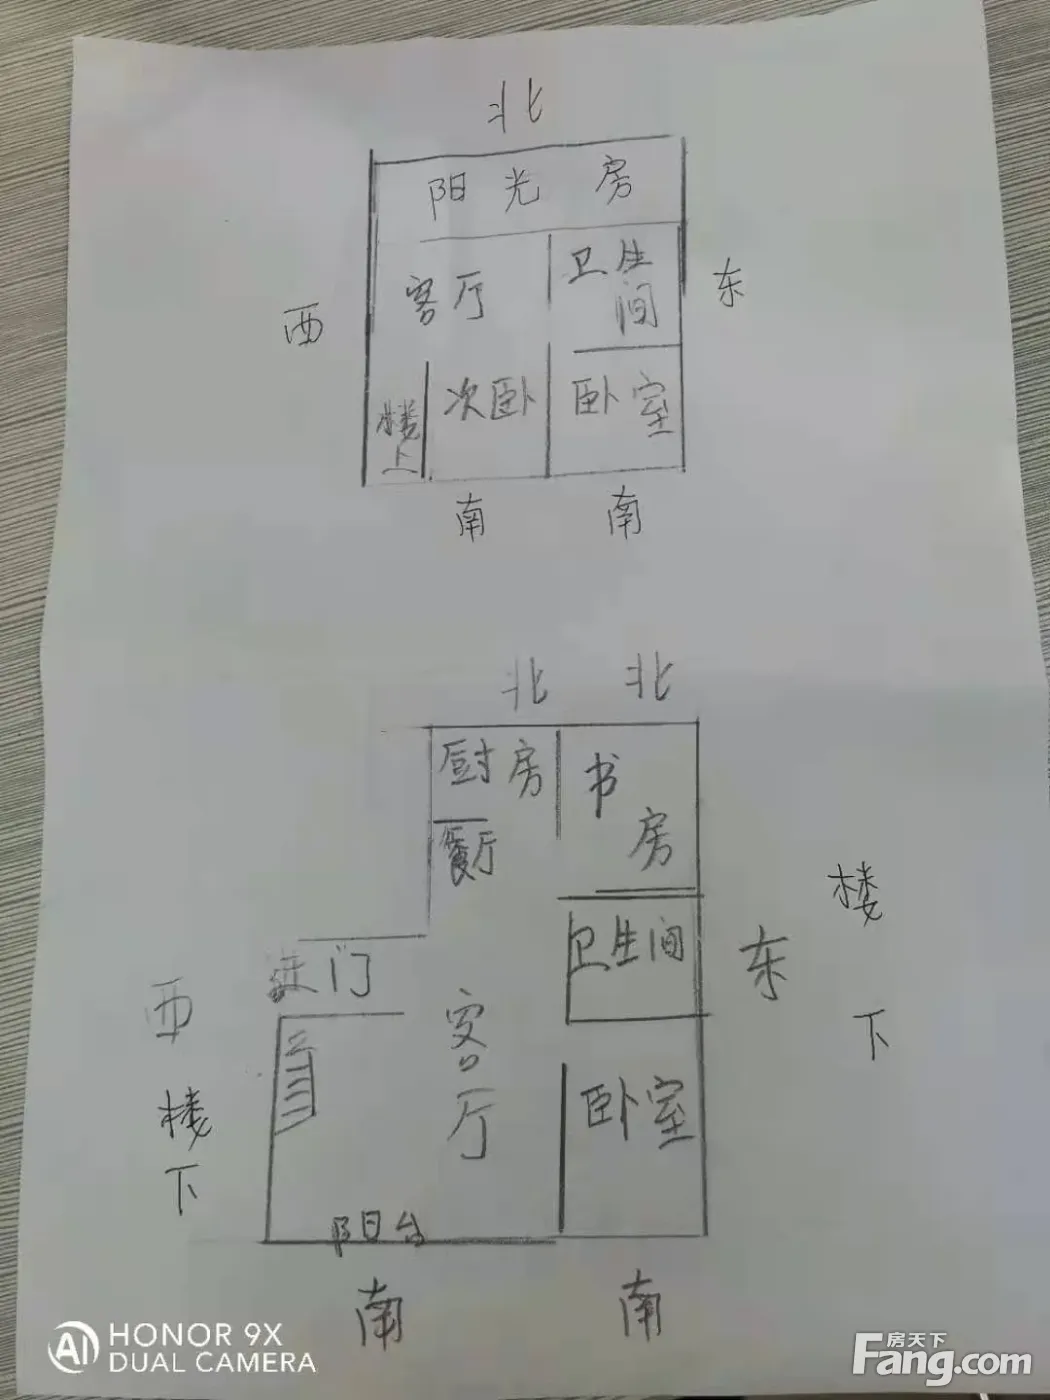 北
阳光房
客厅
卫生间
西
东
次卧
卧室
楼上
南 南
北 北
厨房
书房
餐厅
楼下
卫生间
东
进门
西
客厅
卧室
楼下
阳台
南 南
HONOR 9X
DUAL CAMERA
AI
房天下
Fang.com